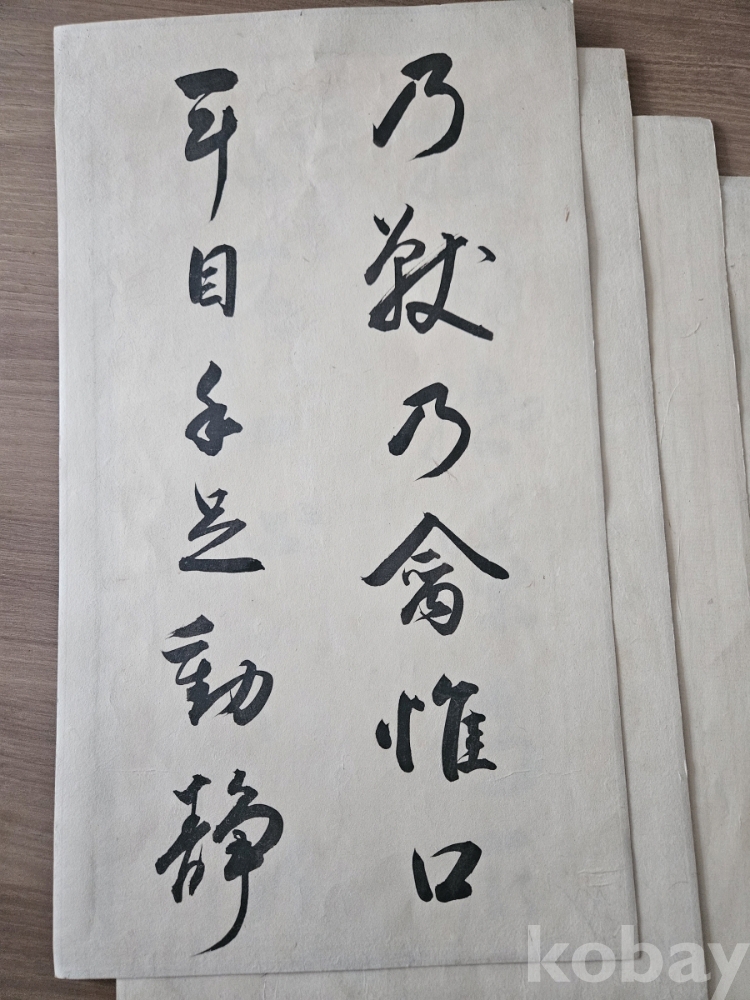 乃獸乃禽惟口
耳目手足動靜
kobay